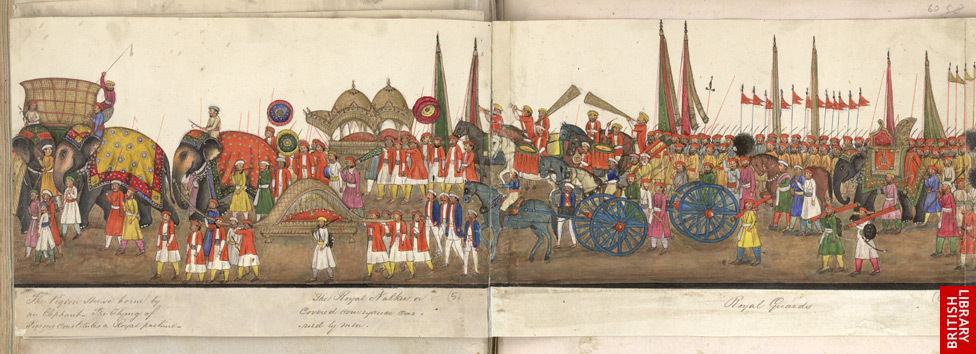 60
The Pigeon House borne by
an Elephant. The flying of
Pigeons constitutes a Royal pastime.
The Royal Nalkee or
Covered conveyance car-
ried by men.
(5)
Royal Guards
BRITISH
LIBRARY